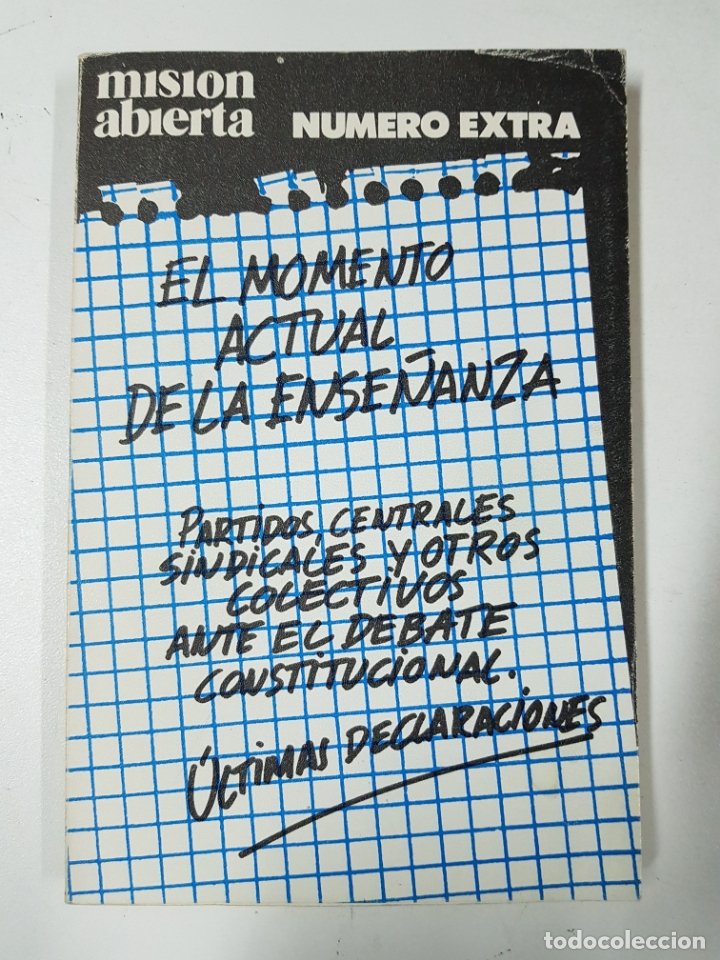 mision
abierta
NUMERO EXTRA
EL MOMENTO
ACTUAL
DE LA ENSEÑANZA
PARTIDOS, CENTRALES
SINDICALES Y OTROS
COLECTIVOS
ANTE EL DEBATE
CONSTITUCIONAL.
ÚLTIMAS DECLARACIONES
todocoleccion